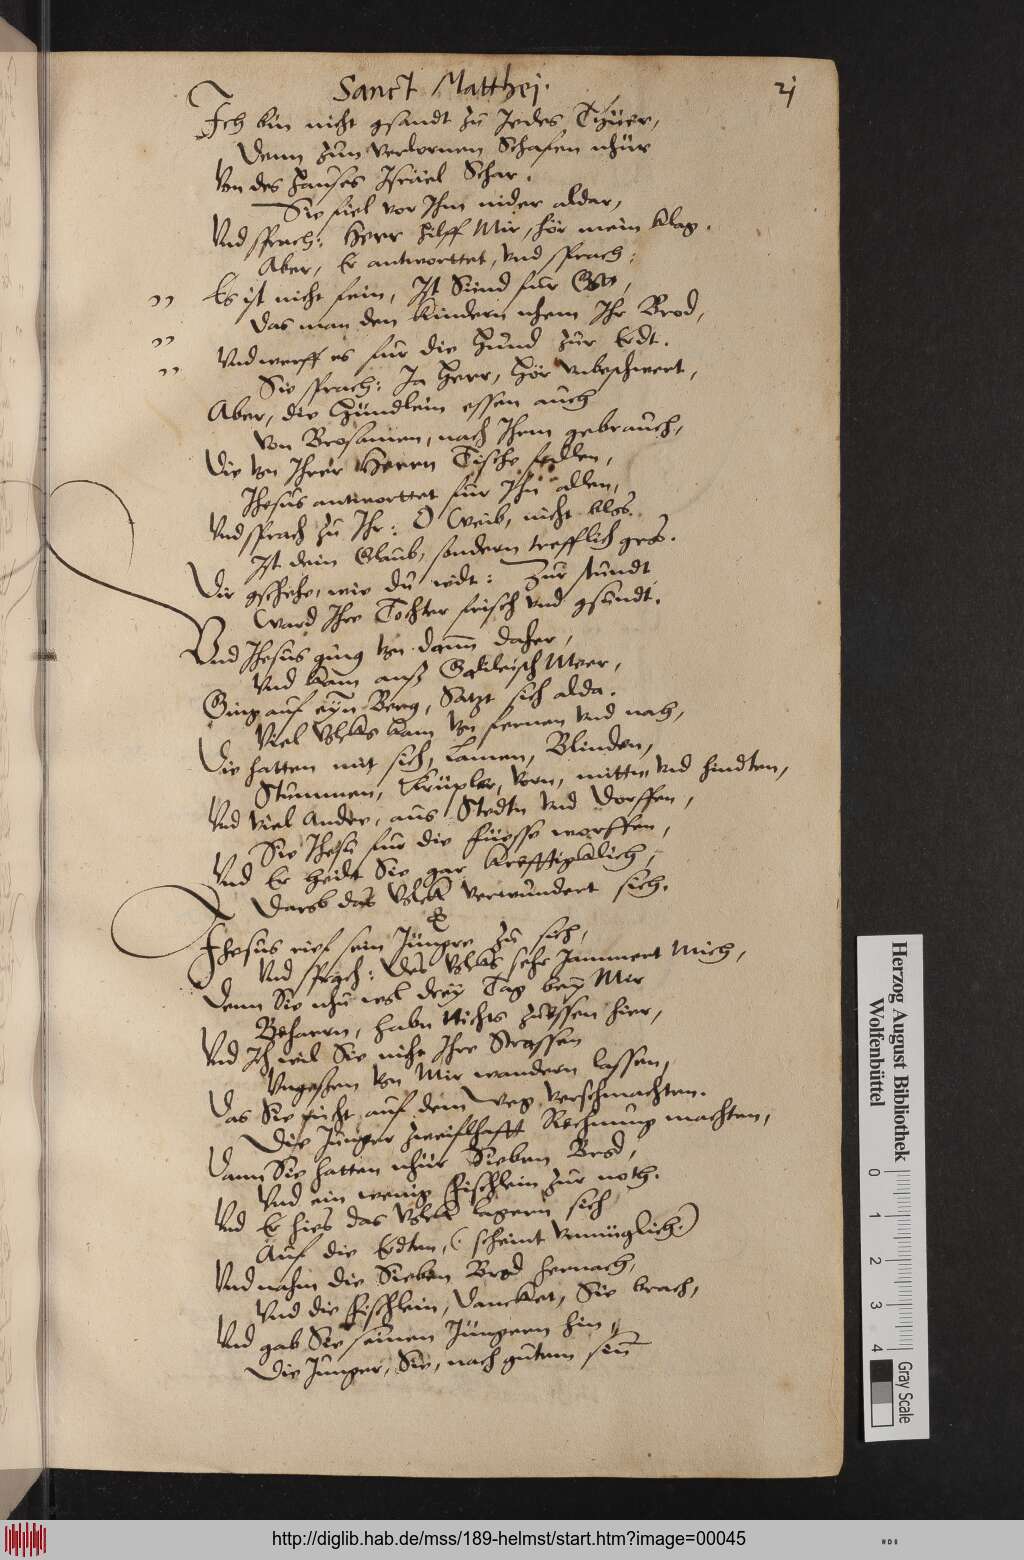 Sanct Matthej. 21
Ich bin nicht gsandt zu Jedes Thüer,
Denn zun verlornen Schafen nhür
Von des Hauses Israel Schar.
Sie fiel vor Ihm nider aldar,
Vnd sprach: Herr Hilff Mir, hör mein klag.
Aber, Er antworttet, vnd sprach:
Es ist nicht fein, Ist Sünd fur Gott,
Das man den Kindern nhem Ihr Brod,
Vnd werff es fur die Hund zur Erdt.
Sie sprach: Ja Herr, Hör vnbeschwert,
Aber, die Hündlein essen auch
Von Brosamen, nach Ihrem gebrauch,
Die von Ihrer Herrn Tische fallen,
Ihesus antworttet fur Ihn allen,
Vnd sprach zu Ihr: O Weib, nicht blos
Ist dein Glaub, sondern trefflich gros.
Dir gschehe, wie du wilt: Zur stundt
Ward Ihre Tochter frisch vnd gsundt.
Vnd Ihesus ging von dann daher,
Vnd kam ans Galileisch Meer,
Ging auf eyn Berg, Satzt sich alda.
Viel Volcks kam von fernen vnd nah,
Die hatten mit sich, Lamen, Blinden,
Stummen, Krüpler, vorn, mitten vnd hindten,
Vnd viel Andre, aus Stedtn vnd Dorffen,
Sie Ihesu fur die füesse worffen,
Vnd Er heilt Sie gar krefftigklich,
Darob das Volck verwundert sich.
Ihesus rief sein Jüngre zu sich,
Vnd sprach: Des Volcks sehr Jammert Mich,
Denn Sie nhu wol drey Tag bey Mir
Beharrn, habn Nichts zuessen hier,
Vnd Ich wil Sie nicht Ihre Strassen
Vngessen von Mir wandern lassen,
Das Sie nicht auf dem weg verschmachten.
Die Junger zweiflhafft Rechnung machten,
Dann Sie hatten nhür Sieben Brod,
Vnd ein wenig Fischlein zur noth.
Vnd Er hies das Volck lagern sich
Auf die Erdten, (: scheint vnmüglich:)
Vnd nahm die Sieben Brod hernach,
Vnd die Fischlein, Dancket, Sie brach,
Vnd gab Sie seinen Jüngern hin,
Die Junger, Sie, nach gutem sin
Herzog August Bibliothek
Wolfenbüttel
0 1 2 3 4
Gray Scale
http://diglib.hab.de/mss/189-helmst/start.htm?image=00045